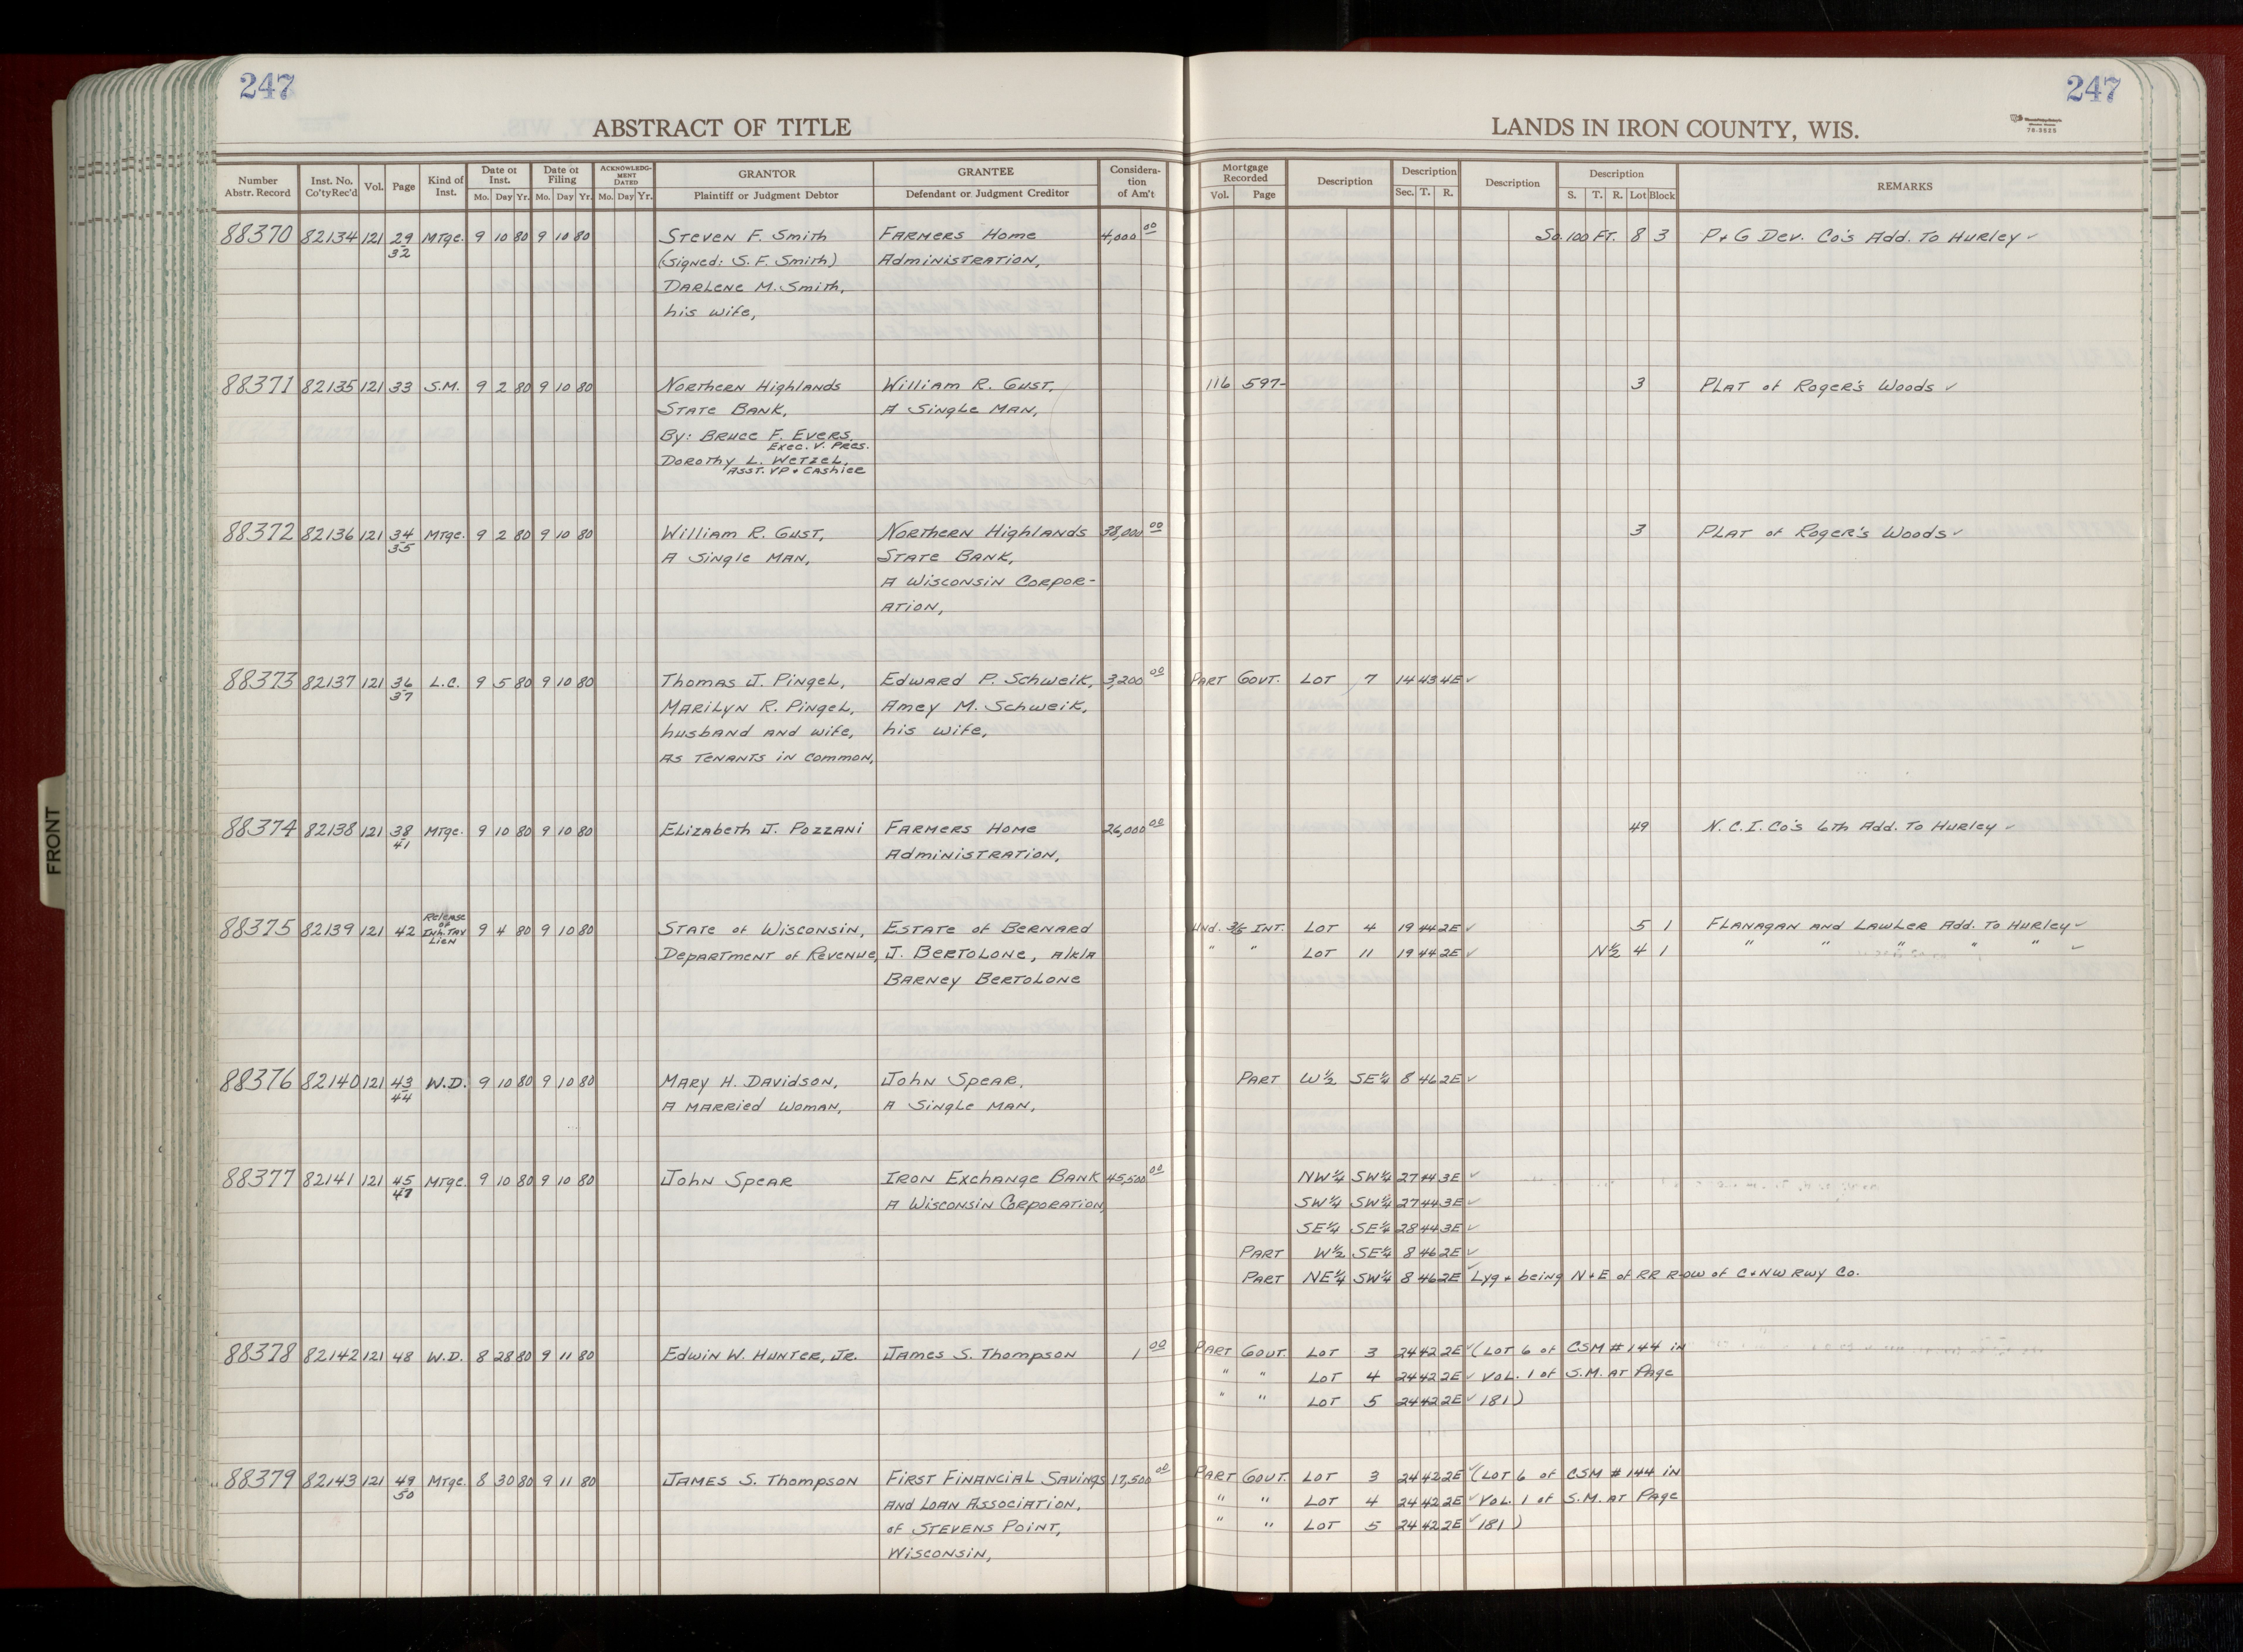 247
247
ABSTRACT OF TITLE
LANDS IN IRON COUNTY, WIS.
78-3525
Number Abstr. Record | Inst. No. Co'ty Rec'd | Vol. | Page | Kind of Inst. | Date of Inst. Mo. Day Yr. | Date of Filing Mo. Day Yr. | ACKNOWLEDGMENT DATED Mo. Day Yr. | GRANTOR Plaintiff or Judgment Debtor | GRANTEE Defendant or Judgment Creditor | Consideration of Am't | Mortgage Recorded Vol. Page | Description | Description Sec. T. R. | Description | Description S. T. R. Lot Block | REMARKS
88370 82134 121 29 Mtge. 9 10 80 9 10 80 Steven F. Smith Farmers Home 4,000 00 So. 100 Ft. 8 3 P + G Dev. Co's Add. To Hurley ✓
32 (Signed: S. F. Smith) Administration,
Darlene M. Smith,
his wife,
88371 82135 121 33 S.M. 9 2 80 9 10 80 Northern Highlands William R. Gust, 116 597- 3 Plat of Roger's Woods ✓
State Bank, A Single Man,
By: Bruce F. Evers,
Exec. V. Pres.
Dorothy L. Wetzel,
Asst. VP + Cashier
88372 82136 121 34 Mtge. 9 2 80 9 10 80 William R. Gust, Northern Highlands 38,000 00 3 Plat of Roger's Woods ✓
35 A Single Man, State Bank,
A Wisconsin Corpor-
ation,
88373 82137 121 36 L.C. 9 5 80 9 10 80 Thomas J. Pingel, Edward P. Schweik, 3,200 00 Part Govt. Lot 7 14 43 4E ✓
37 Marilyn R. Pingel, Amey M. Schweik,
husband and wife, his wife,
as tenants in common,
88374 82138 121 38 Mtge. 9 10 80 9 10 80 Elizabeth J. Pozzani Farmers Home 26,000 00 49 N.C.I. Co's 6th Add. To Hurley ✓
41 Administration,
88375 82139 121 42 Release of Inh. Tax Lien 9 4 80 9 10 80 State of Wisconsin, Estate of Bernard Und. 3/5 Int. Lot 4 19 44 2E ✓ 5 1 Flanagan and Lawler Add. To Hurley ✓
Department of Revenue, J. Bertolone, a/k/a " " Lot 11 19 44 2E ✓ N½ 4 1 " " " " " ✓
Barney Bertolone
88376 82140 121 43 W.D. 9 10 80 9 10 80 Mary H. Davidson, John Spear, Part W½ SE¼ 8 46 2E ✓
44 A Married Woman, A Single Man,
88377 82141 121 45 Mtge. 9 10 80 9 10 80 John Spear Iron Exchange Bank 45,500 00 NW¼ SW¼ 27 44 3E ✓
47 A Wisconsin Corporation, SW¼ SW¼ 27 44 3E ✓
SE¼ SE¼ 28 44 3E ✓
Part W½ SE¼ 8 46 2E ✓
Part NE¼ SW¼ 8 46 2E ✓ Lyg + being N + E of RR Row of C + NW Rwy Co.
88378 82142 121 48 W.D. 8 28 80 9 11 80 Edwin W. Hunter, Jr. James S. Thompson 1 00 Part Govt. Lot 3 24 42 2E ✓ (Lot 6 of CSM # 144 in
" " Lot 4 24 42 2E ✓ Vol. 1 of S.M. at Page
" " Lot 5 24 42 2E ✓ 181)
88379 82143 121 49 Mtge. 8 30 80 9 11 80 James S. Thompson First Financial Savings 17,500 00 Part Govt. Lot 3 24 42 2E ✓ (Lot 6 of CSM # 144 in
50 and Loan Association, " " Lot 4 24 42 2E ✓ Vol. 1 of S.M. at Page
of Stevens Point, " " Lot 5 24 42 2E ✓ 181)
Wisconsin,
FRONT